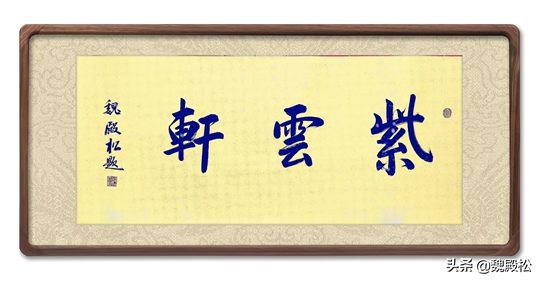 紫雲軒
魏殿松題
头条 @魏殿松